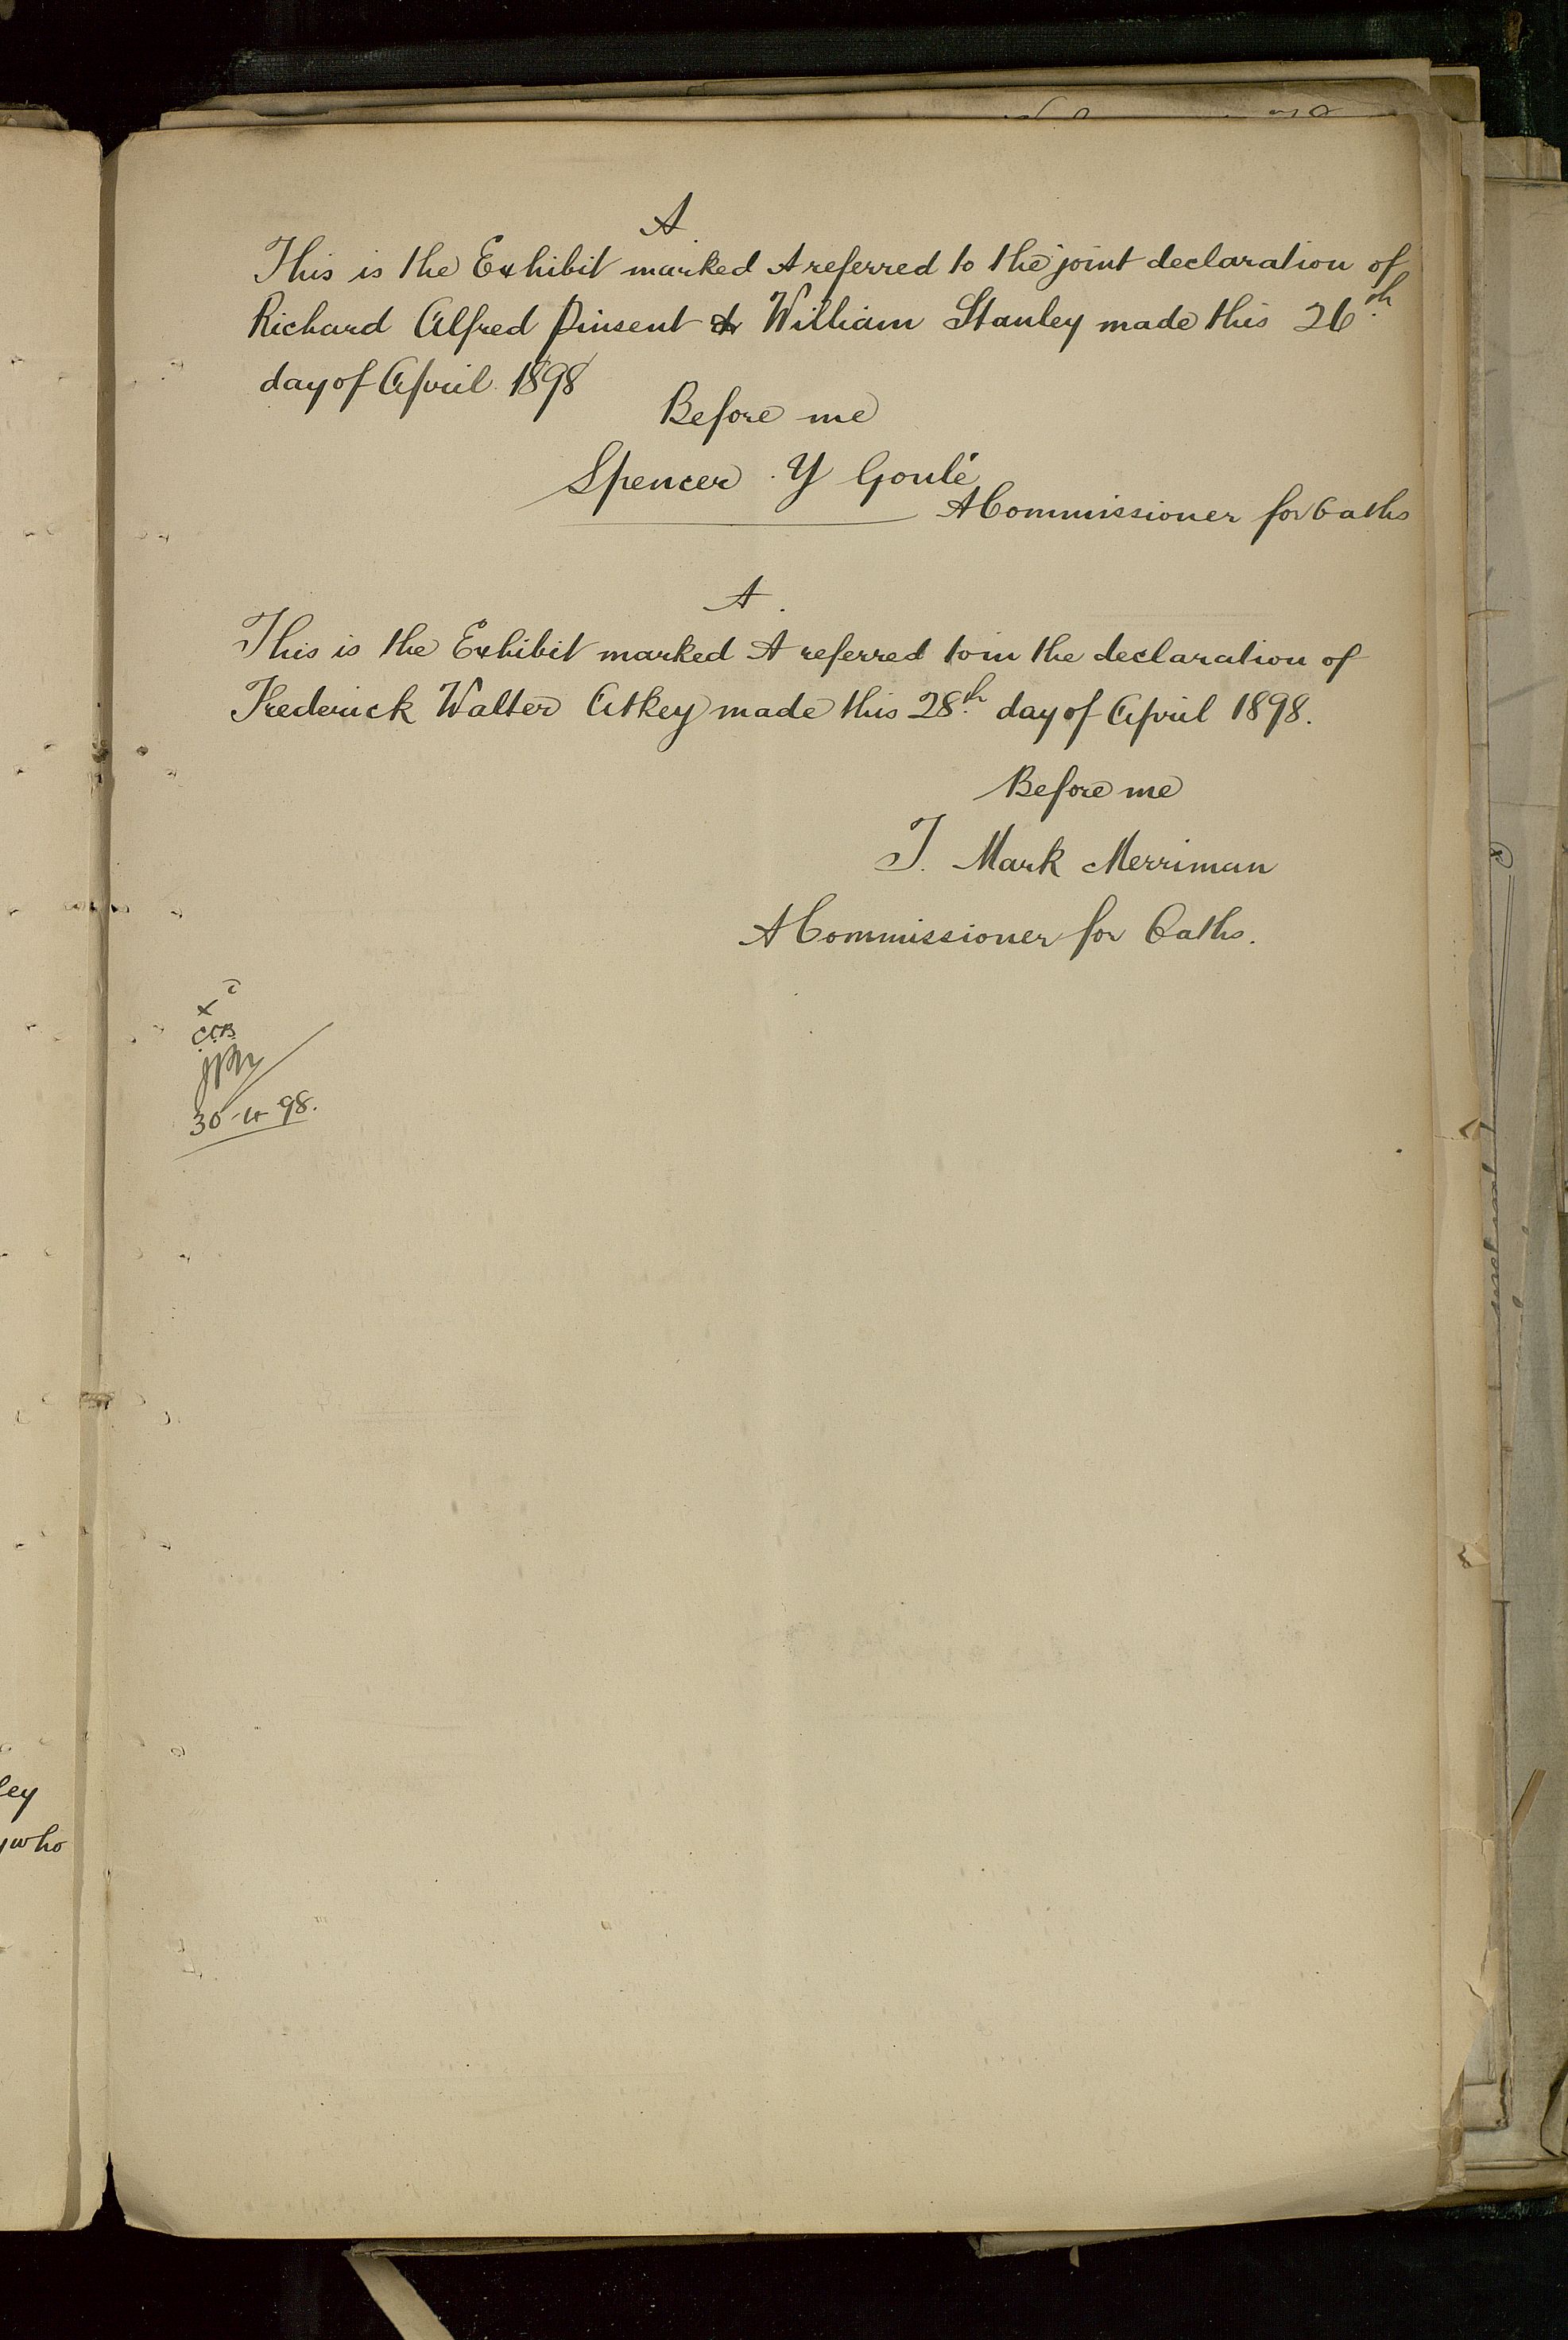 A
This is the Exhibit marked A referred to the joint declaration of
Richard Alfred Pinsent & William Stanley made this 26th
day of April 1898
Before me
Spencer Y Goulé
A Commissioner for Oaths
A.
This is the Exhibit marked A referred to in the declaration of
Frederick Walter Atkey made this 28th day of April 1898.
Before me
J. Mark Merriman
A Commissioner for Oaths.
x
30-4-98.
ley
who